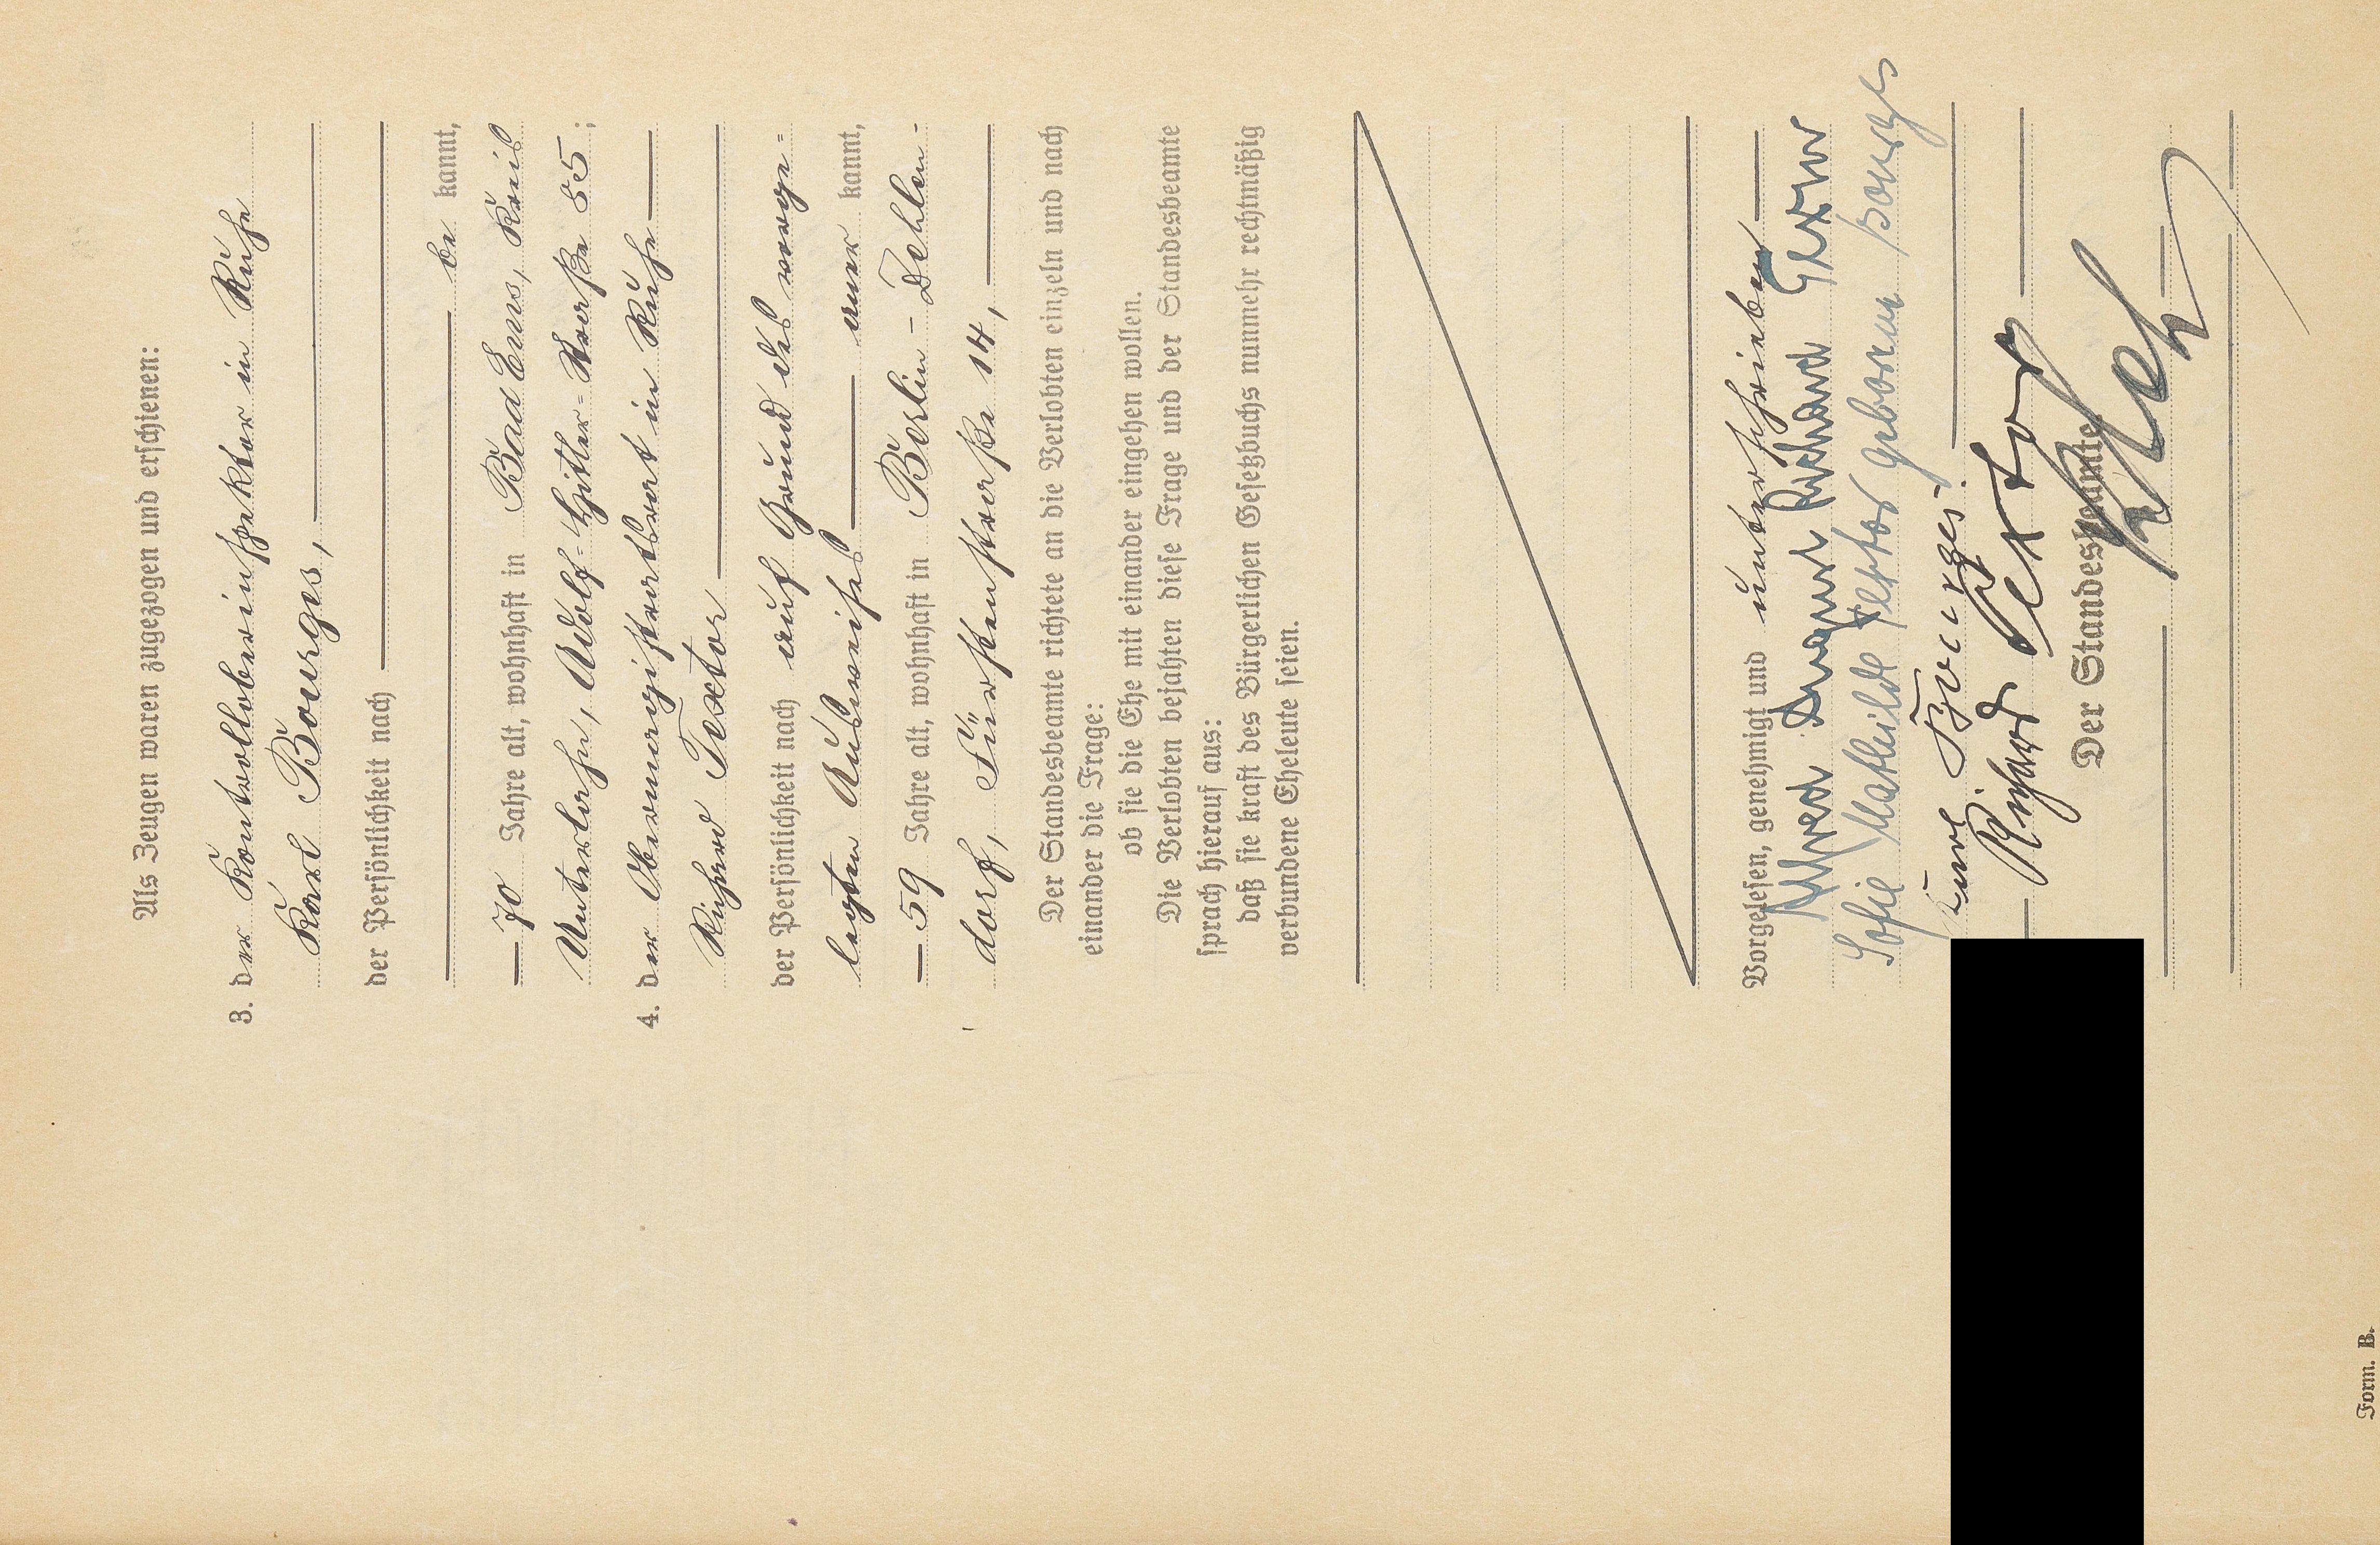 Als Zeugen waren zugezogen und erschienen:
3. der Kontrolloberinspektor in Ruhe
Karl Bourges,
der Persönlichkeit nach
be kannt,
70 Jahre alt, wohnhaft in Bad Ems, Kreis
Unterlahn, Adolf-Hitler-Straße 85;
4. der Obermagistratsrat in Ruhe
Richard Textor
der Persönlichkeit nach auf Grund des vorge=
legten Ausweises aner kannt,
59 Jahre alt, wohnhaft in Berlin-Zehlen-
dorf, Fürstenstraße 14,
Der Standesbeamte richtete an die Verlobten einzeln und nach
einander die Frage:
ob sie die Ehe mit einander eingehen wollen.
Die Verlobten bejahten diese Frage und der Standesbeamte
sprach hierauf aus:
daß sie kraft des Bürgerlichen Gesetzbuchs nunmehr rechtmäßig
verbundene Eheleute seien.
Vorgelesen, genehmigt und unterschrieben
Alfred August Richard Textor
Sofie Mathilde Textor geborene Bourges
Karl Bourges.
Richard Textor
Der Standesbeamte
Form. B.